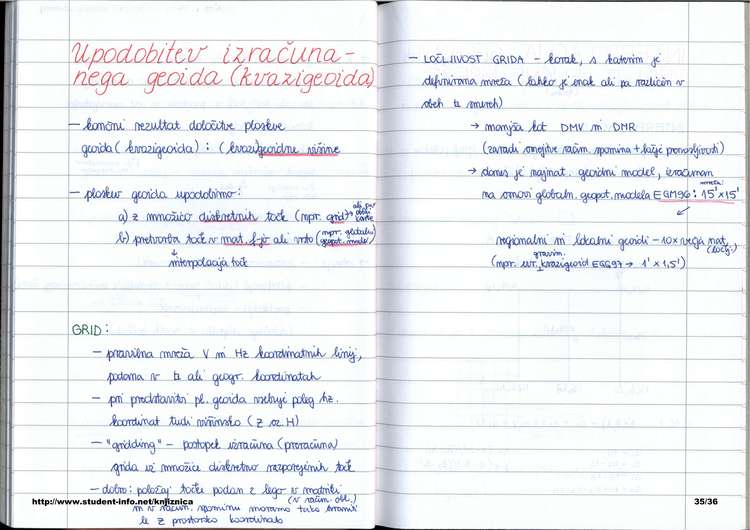 Upodobitev izračuna-
nega geoida (kvazigeoida)
– končni rezultat določitve ploskve
geoida (kvazigeoida) : (kvazi)geoidne višine
– ploskev geoida upodobimo:
a) z množico diskretnih točk (npr. grid) → ali pa
karte
b) pretvorba točk v mat. f-jo ali vrsto (npr. globalni
geopot. model)
↓
interpolacija točk
GRID:
– pravilna mreža V in Hz koordinatnih linij,
podana v ali geogr. koordinatah
– pri predstavitvi pl. geoida vsebuje poleg hz.
koordinat tudi višinsko (Z oz. H)
– "gridding" – postopek izračuna (preračuna)
grida iz množice diskretno razporejenih točk
– dobro: položaj točke podan z lego v matriki
(v račun. obl.)
in v račun. spominu moramo tako hraniti
le z prostorsko koordinato
http://www.student-info.net/knjiznica
– LOČLJIVOST GRIDA – korak, s katerim je
definirana mreža (lahko je enak ali pa različen v
obeh smereh)
→ manjša kot DMV in DMR
(zaradi omejitve račun. spomina + lažje prenosljivosti)
→ danes je najnat. geoidni model, izračunan
mreža:
na osnovi globaln. geopot. modela EGM96 : 15' × 15'
regionalni in lokalni geoidi – 10× večja nat.
(ločlj.)
gravim.
(npr. evr. kvazigeoid EGG97 → 1' × 1,5')
35/36